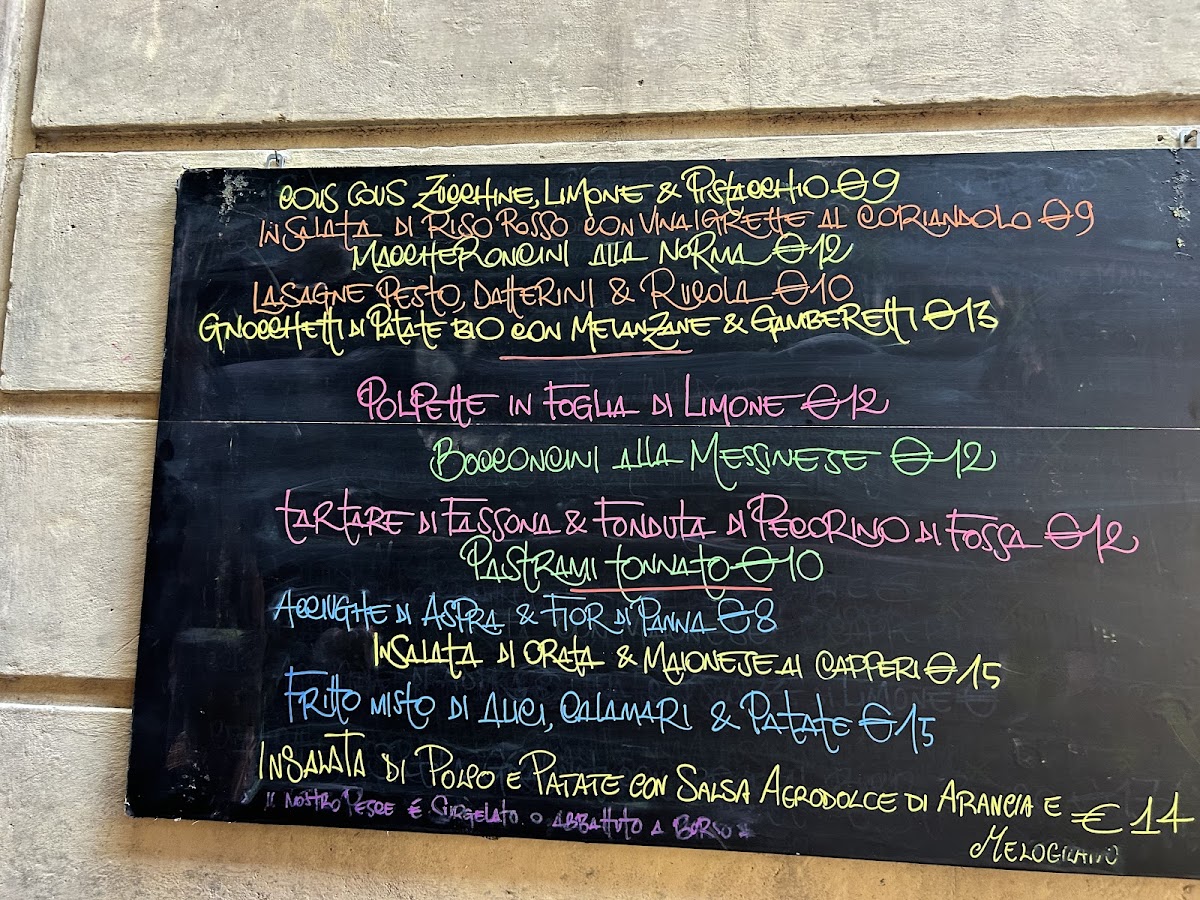 COUS COUS ZUCCHINE, LIMONE & PISTACCHIO € 9
INSALATA DI RISO ROSSO CON VINAIGRETTE AL CORIANDOLO € 9
MACCHERONCINI ALLA NORMA € 12
LASAGNE PESTO, DATTERINI & RUCOLA € 10
GNOCCHETTI DI PATATE BIO CON MELANZANE & GAMBERETTI € 13
POLPETTE IN FOGLIA DI LIMONE € 12
BOCCONCINI ALLA MESSINESE € 12
TARTARE DI FASSONA & FONDUTA DI PECORINO DI FOSSA € 12
PASTRAMI TONNATO € 10
ACCIUGHE DI ASPRA & FIOR DI PANNA € 8
INSALATA DI ORATA & MAIONESE AI CAPPERI € 15
FRITTO MISTO DI ALICI, CALAMARI & PATATE € 15
INSALATA DI POLPO E PATATE CON SALSA AGRODOLCE DI ARANCIA E € 14
MELOGRANO
IL NOSTRO PESCE È SURGELATO O ABBATTUTO A BORDO *